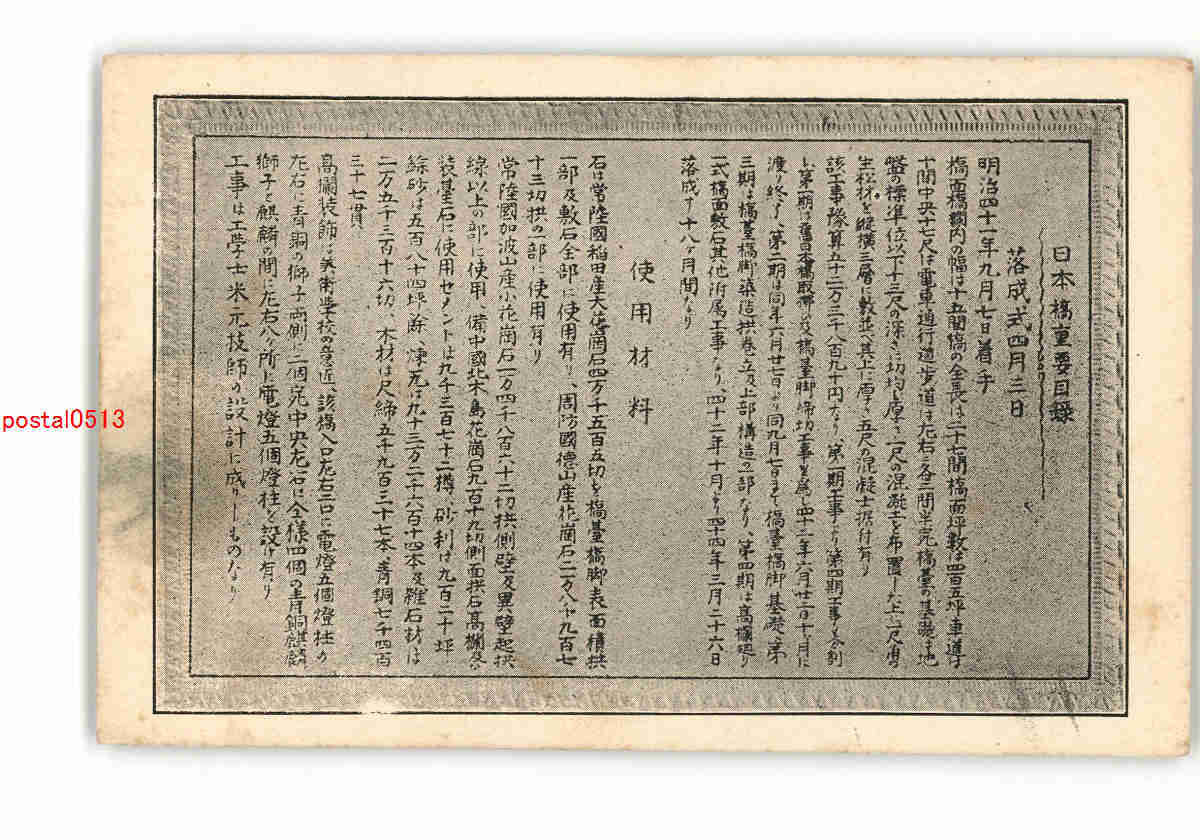 日本橋重要目録
落成式四月三日
明治四十一年九月七日着手
橋面橋欄内の幅は十五間橋の全長は二十七間橋面坪数は四百五坪車道は
十間中央十七尺は電車通行道歩道は左右に各二間半宛橋台の基礎は地
盤の標準位以下十三尺の深さに切均し厚さ二尺の混凝土を布置した上に尺角の
生松材を縦横三層に敷並べ其上に厚さ五尺の混凝土据付有り
該工事予算五十二万三千八百九十円なり、第一期工事より第四期工事に分割
し第一期は旧日本橋取払及橋台脚締切工事を為し四十二年六月廿二日十ヶ月に
渡り終了、第二期は同年六月廿七日より同九月七日まで橋台橋脚基礎、第
三期は橋台橋脚築造拱巻立及上部構造の一部なり、第四期は高欄廻り
一式橋面敷石其他附属工事なり、四十二年十月より四十四年三月二十六日
落成す十八ヶ月間なり
使用材料
石は常陸國稲田産大花崗石四万千五百五切を橋台橋脚表面積拱
一部及敷石全部に使用有り、周防國徳山産花崗石二万八千九百七
十三切拱の一部に使用有り
常陸國加波山産小花崗石一万四千八百二十二切拱側壁及異壁起拱
線以上の部に使用、備中國北木島花崗石九百十九切側面拱石高欄及
装基石に使用セメントは九千三百七十二樽、砂利は九百二十坪
餘砂は五百八十四坪餘、煉瓦は九十三万二千六百十四本及雑石材は
二万五千三百十六切、木材は尺締五千九百三十七本、青銅七千四百
三十七貫、
高欄装飾は美術学校の意匠、該橋入口左右二口に電燈五個燈柱が
左右に青銅の獅子両側に二個宛中央左右に今様四個の青銅麒麟
獅子と麒麟の間に左右八ヶ所に電燈五個燈柱を設け有り
工事は工学士米元技師の設計に成りしものなり
postal0513